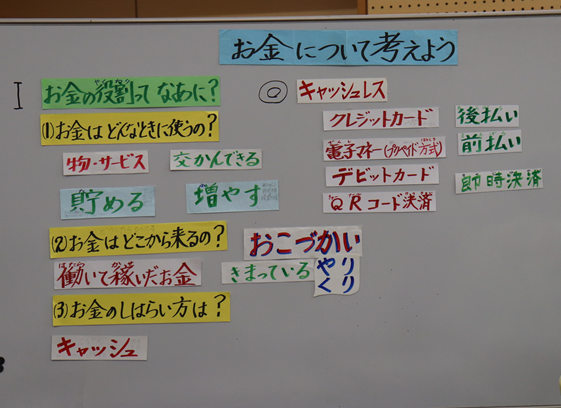 お金について考えよう
I
お金の役割ってなあに?
(1)お金はどんなときに使うの?
物・サービス
交かんできる
貯める
増やす
(2)お金はどこから来るの?
おこづかい
働いて稼いだお金
きまっている
やり
くり
(3)お金のしはらい方は?
キャッシュ
◎
キャッシュレス
クレジットカード
後払い
電子マネー(プリペイド方式)
前払い
デビットカード
即時決済
QRコード決済